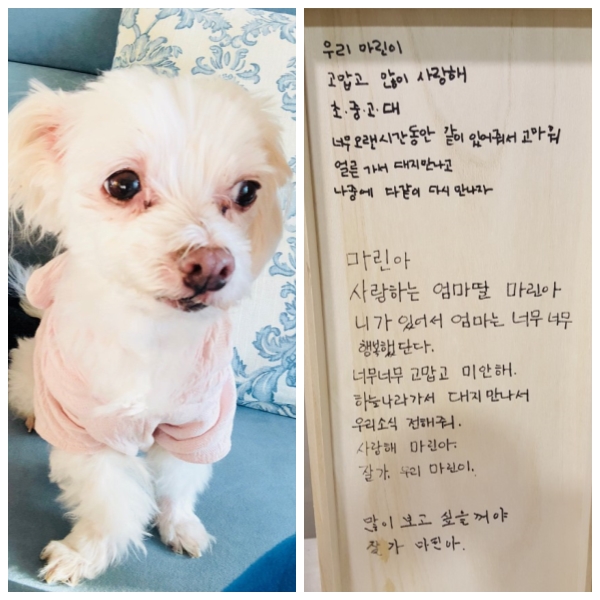 우리 마린이
고맙고 많이 사랑해
초·중·고·대
너무 오랜시간동안 같이 있어줘서 고마워
얼른 가서 대지만나고
나중에 다같이 다시 만나자
마린아
사랑하는 엄마딸 마린아
니가 있어서 엄마는 너무 너무
행복했단다.
너무너무 고맙고 미안해.
하늘나라가서 대지만나서
우리소식 전해줘.
사랑해 마린아.
잘가. 우리 마린이.
많이 보고 싶을꺼야
잘가 마린아.